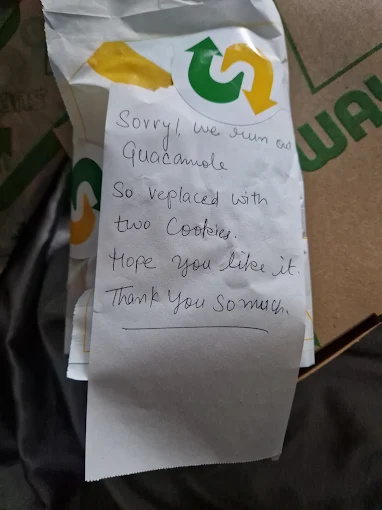 Sorry!, we run out
Guacamole
So replaced with
two Cookies.
Hope you like it.
Thank You So much.
WAY